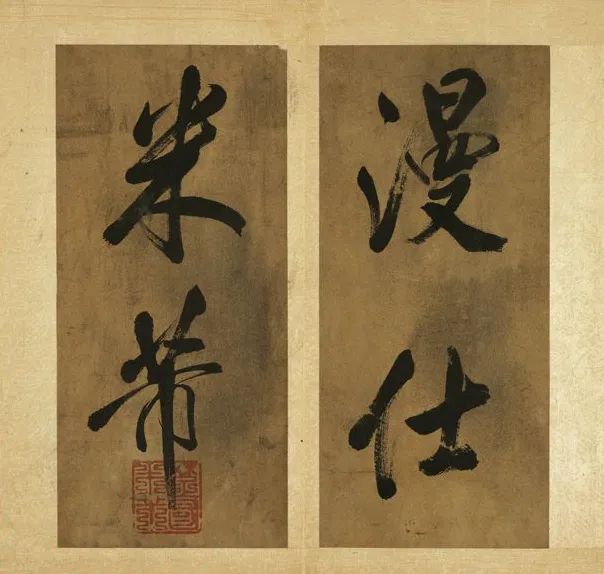 漫仕
米芾